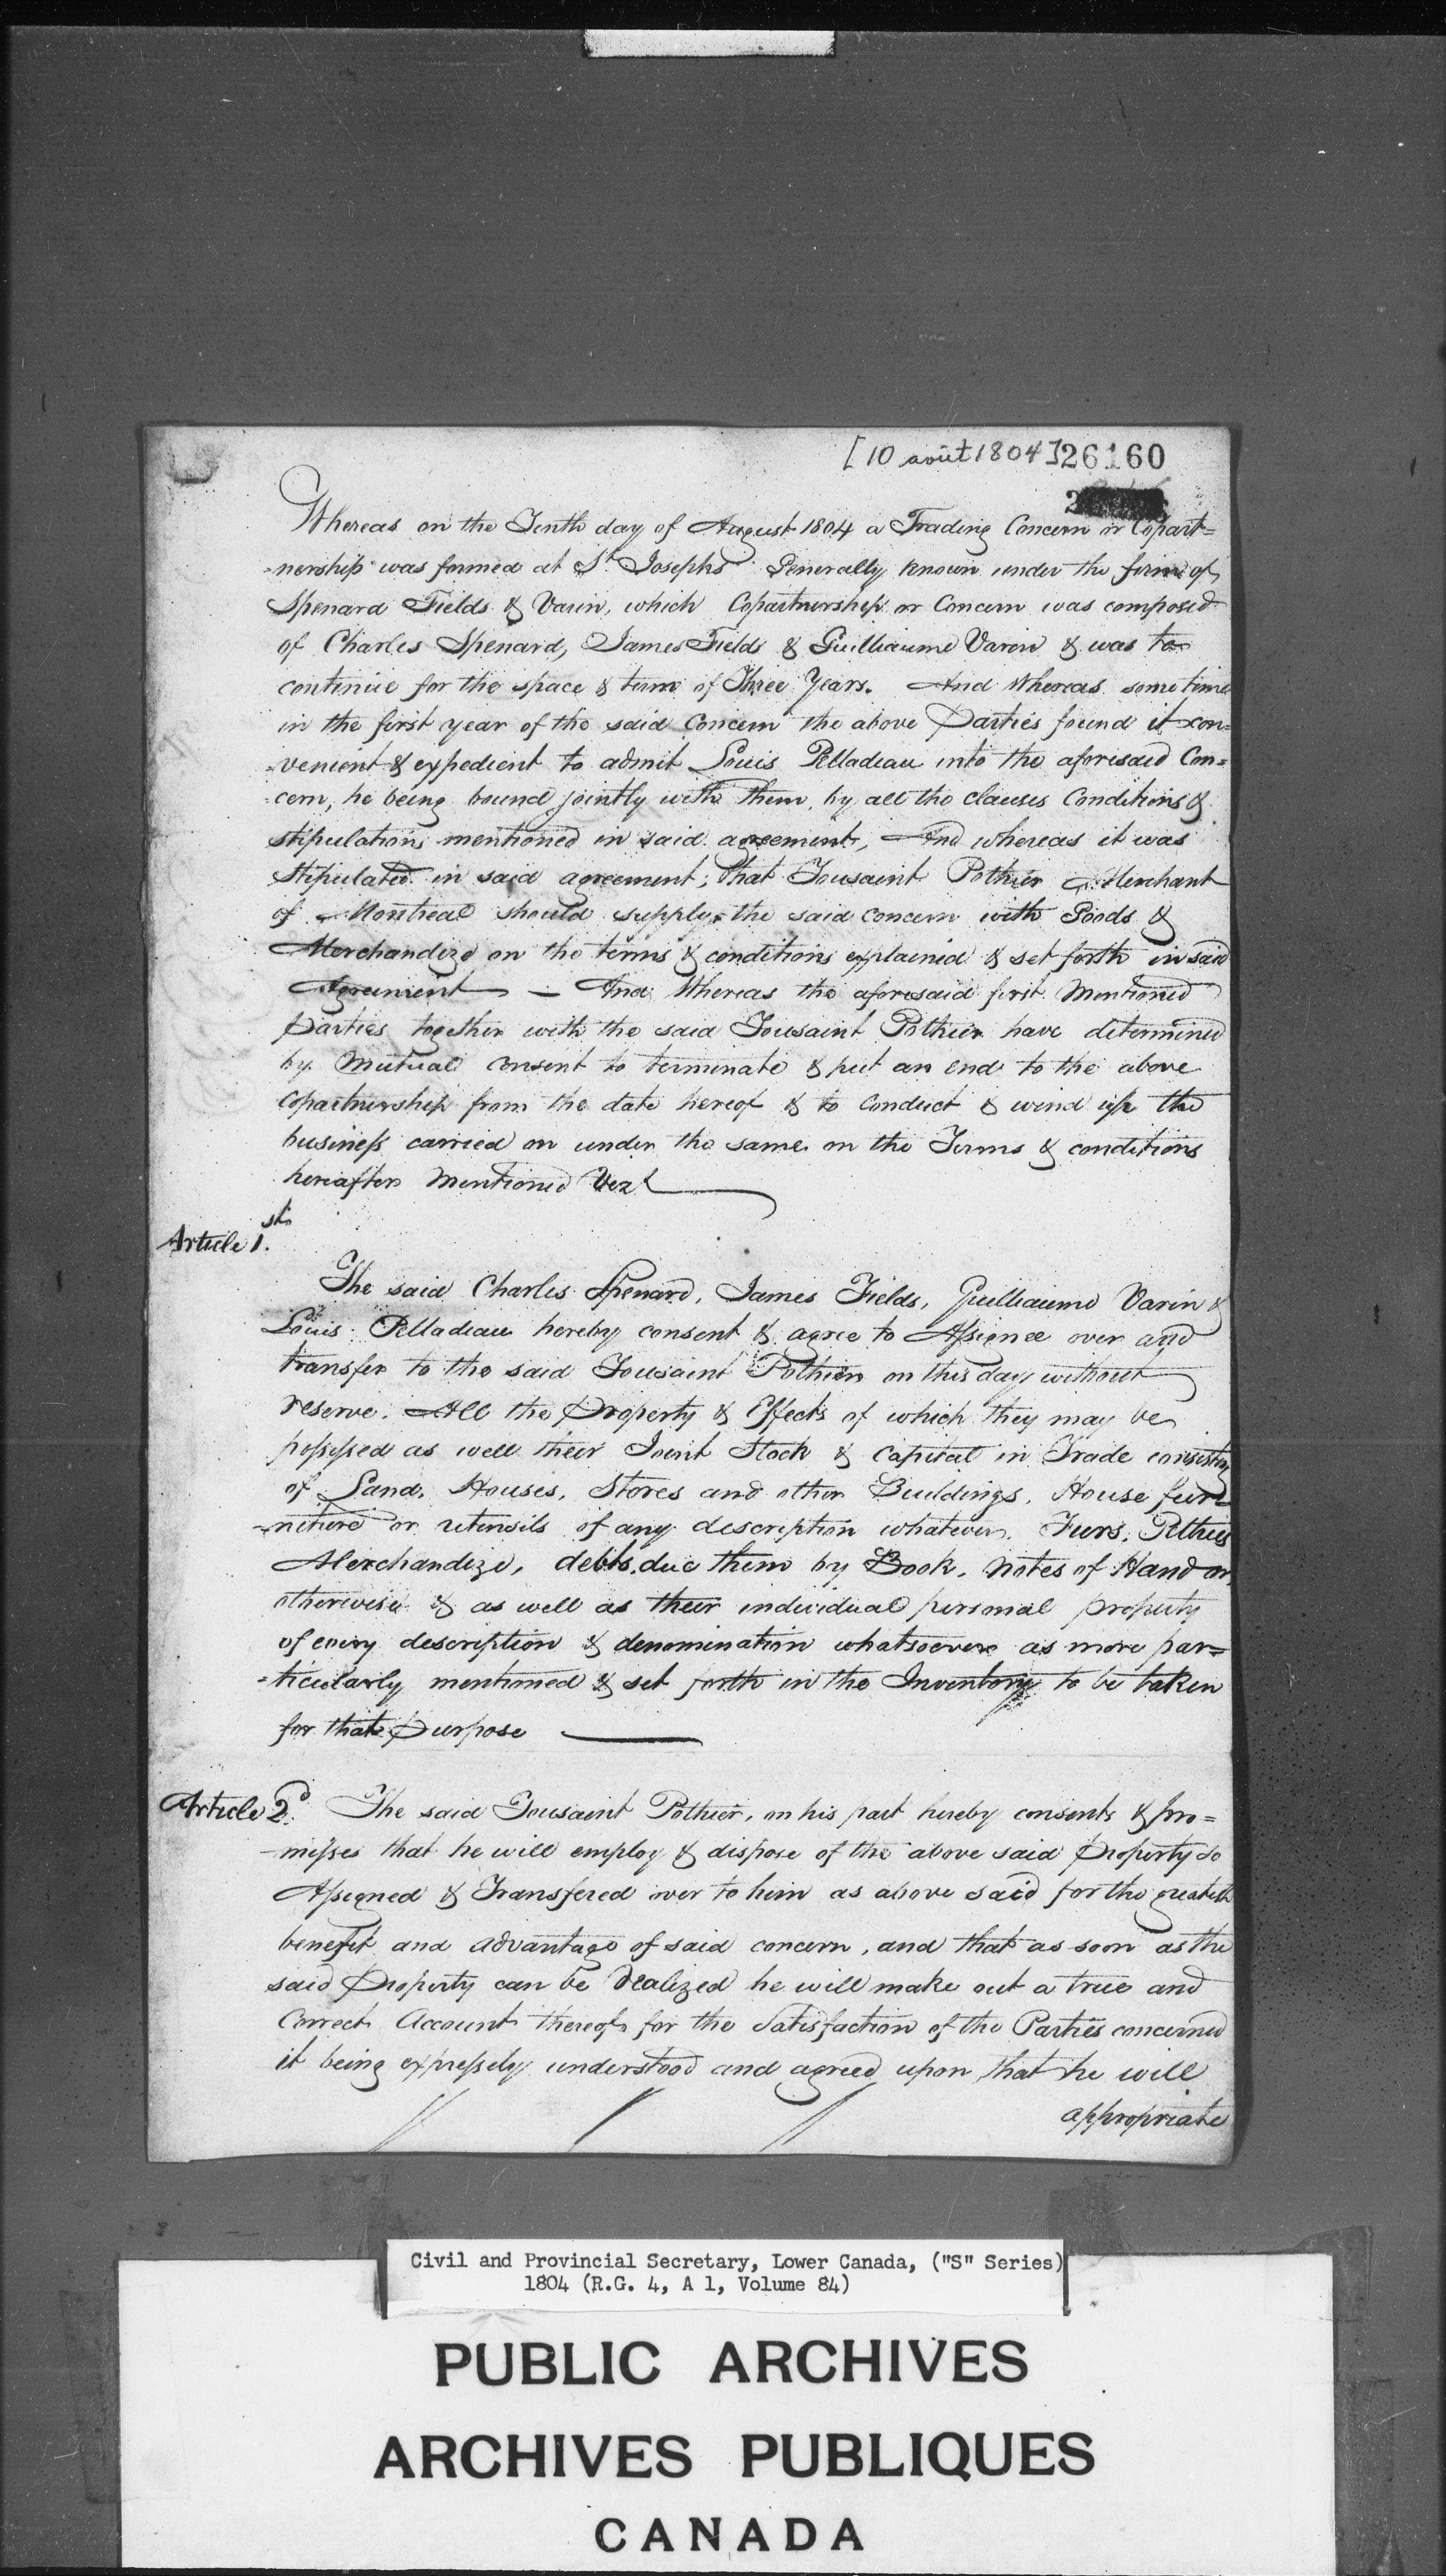 [10 août 1804] 26160
2
Whereas on the Tenth day of August 1804 a Trading Concern or Copart=
=nership was formed at St. Josephs Generally known under the firm of
Spenard Fields & Varin, which Copartnership or Concern was composed
of Charles Spenard, James Fields & Guilliaume Varin & was to
continue for the space & term of Three Years. And Whereas some time
in the first year of the said Concern the above Parties found it con=
=venient & expedient to admit Louis Pelladeau into the aforesaid Con=
=cern, he being bound jointly with them, by all the clauses Conditions &
stipulations mentioned in said agreement, And whereas it was
Stipulated in said agreement; that Tousaint Pothier Merchant
of Montreal should supply the said concern with Goods &
Merchandize on the terms & conditions explained & set forth in said
Agreement — And Whereas the aforesaid first Mentioned
Parties together with the said Tousaint Pothier have determined
by Mutual consent to terminate & put an end to the above
Copartnership from the date hereof & to Conduct & wind up the
business carried on under the same on the Terms & conditions
hereafter Mentioned Vizt
Article 1st.
The said Charles Spenard, James Fields, Guilliaume Varin &
Louis Pelladeau hereby consent & agree to Assignee over and
transfer to the said Tousaint Pothier on this day without
reserve. All the Property & Effects of which they may be
possessed as well their Joint Stock & Capital in Trade consisting
of Land, Houses, Stores and other Buildings, House fur=
=niture or utensils of any description whatever, Furs, Peltries
Merchandize, debts due them by Book, Notes of Hand or
otherwise & as well as their individual personal property
of every description & denomination whatsoever as more par=
=ticularly mentioned & set forth in the Inventory to be taken
for that Purpose —
Article 2d. The said Tousaint Pothier, on his part hereby consents & pro=
=misses that he will employ & dispose of the above said Property so
Assigned & Transfered over to him as above said for the greatest
benefit and advantage of said concern, and that as soon as the
said Property can be Realized he will make out a true and
Correct Account thereof for the Satisfaction of the Parties concerned
it being expressely understood and agreed upon that he will
appropriate
Civil and Provincial Secretary, Lower Canada, ("S" Series)
1804 (R.G. 4, A 1, Volume 84)
PUBLIC ARCHIVES
ARCHIVES PUBLIQUES
CANADA